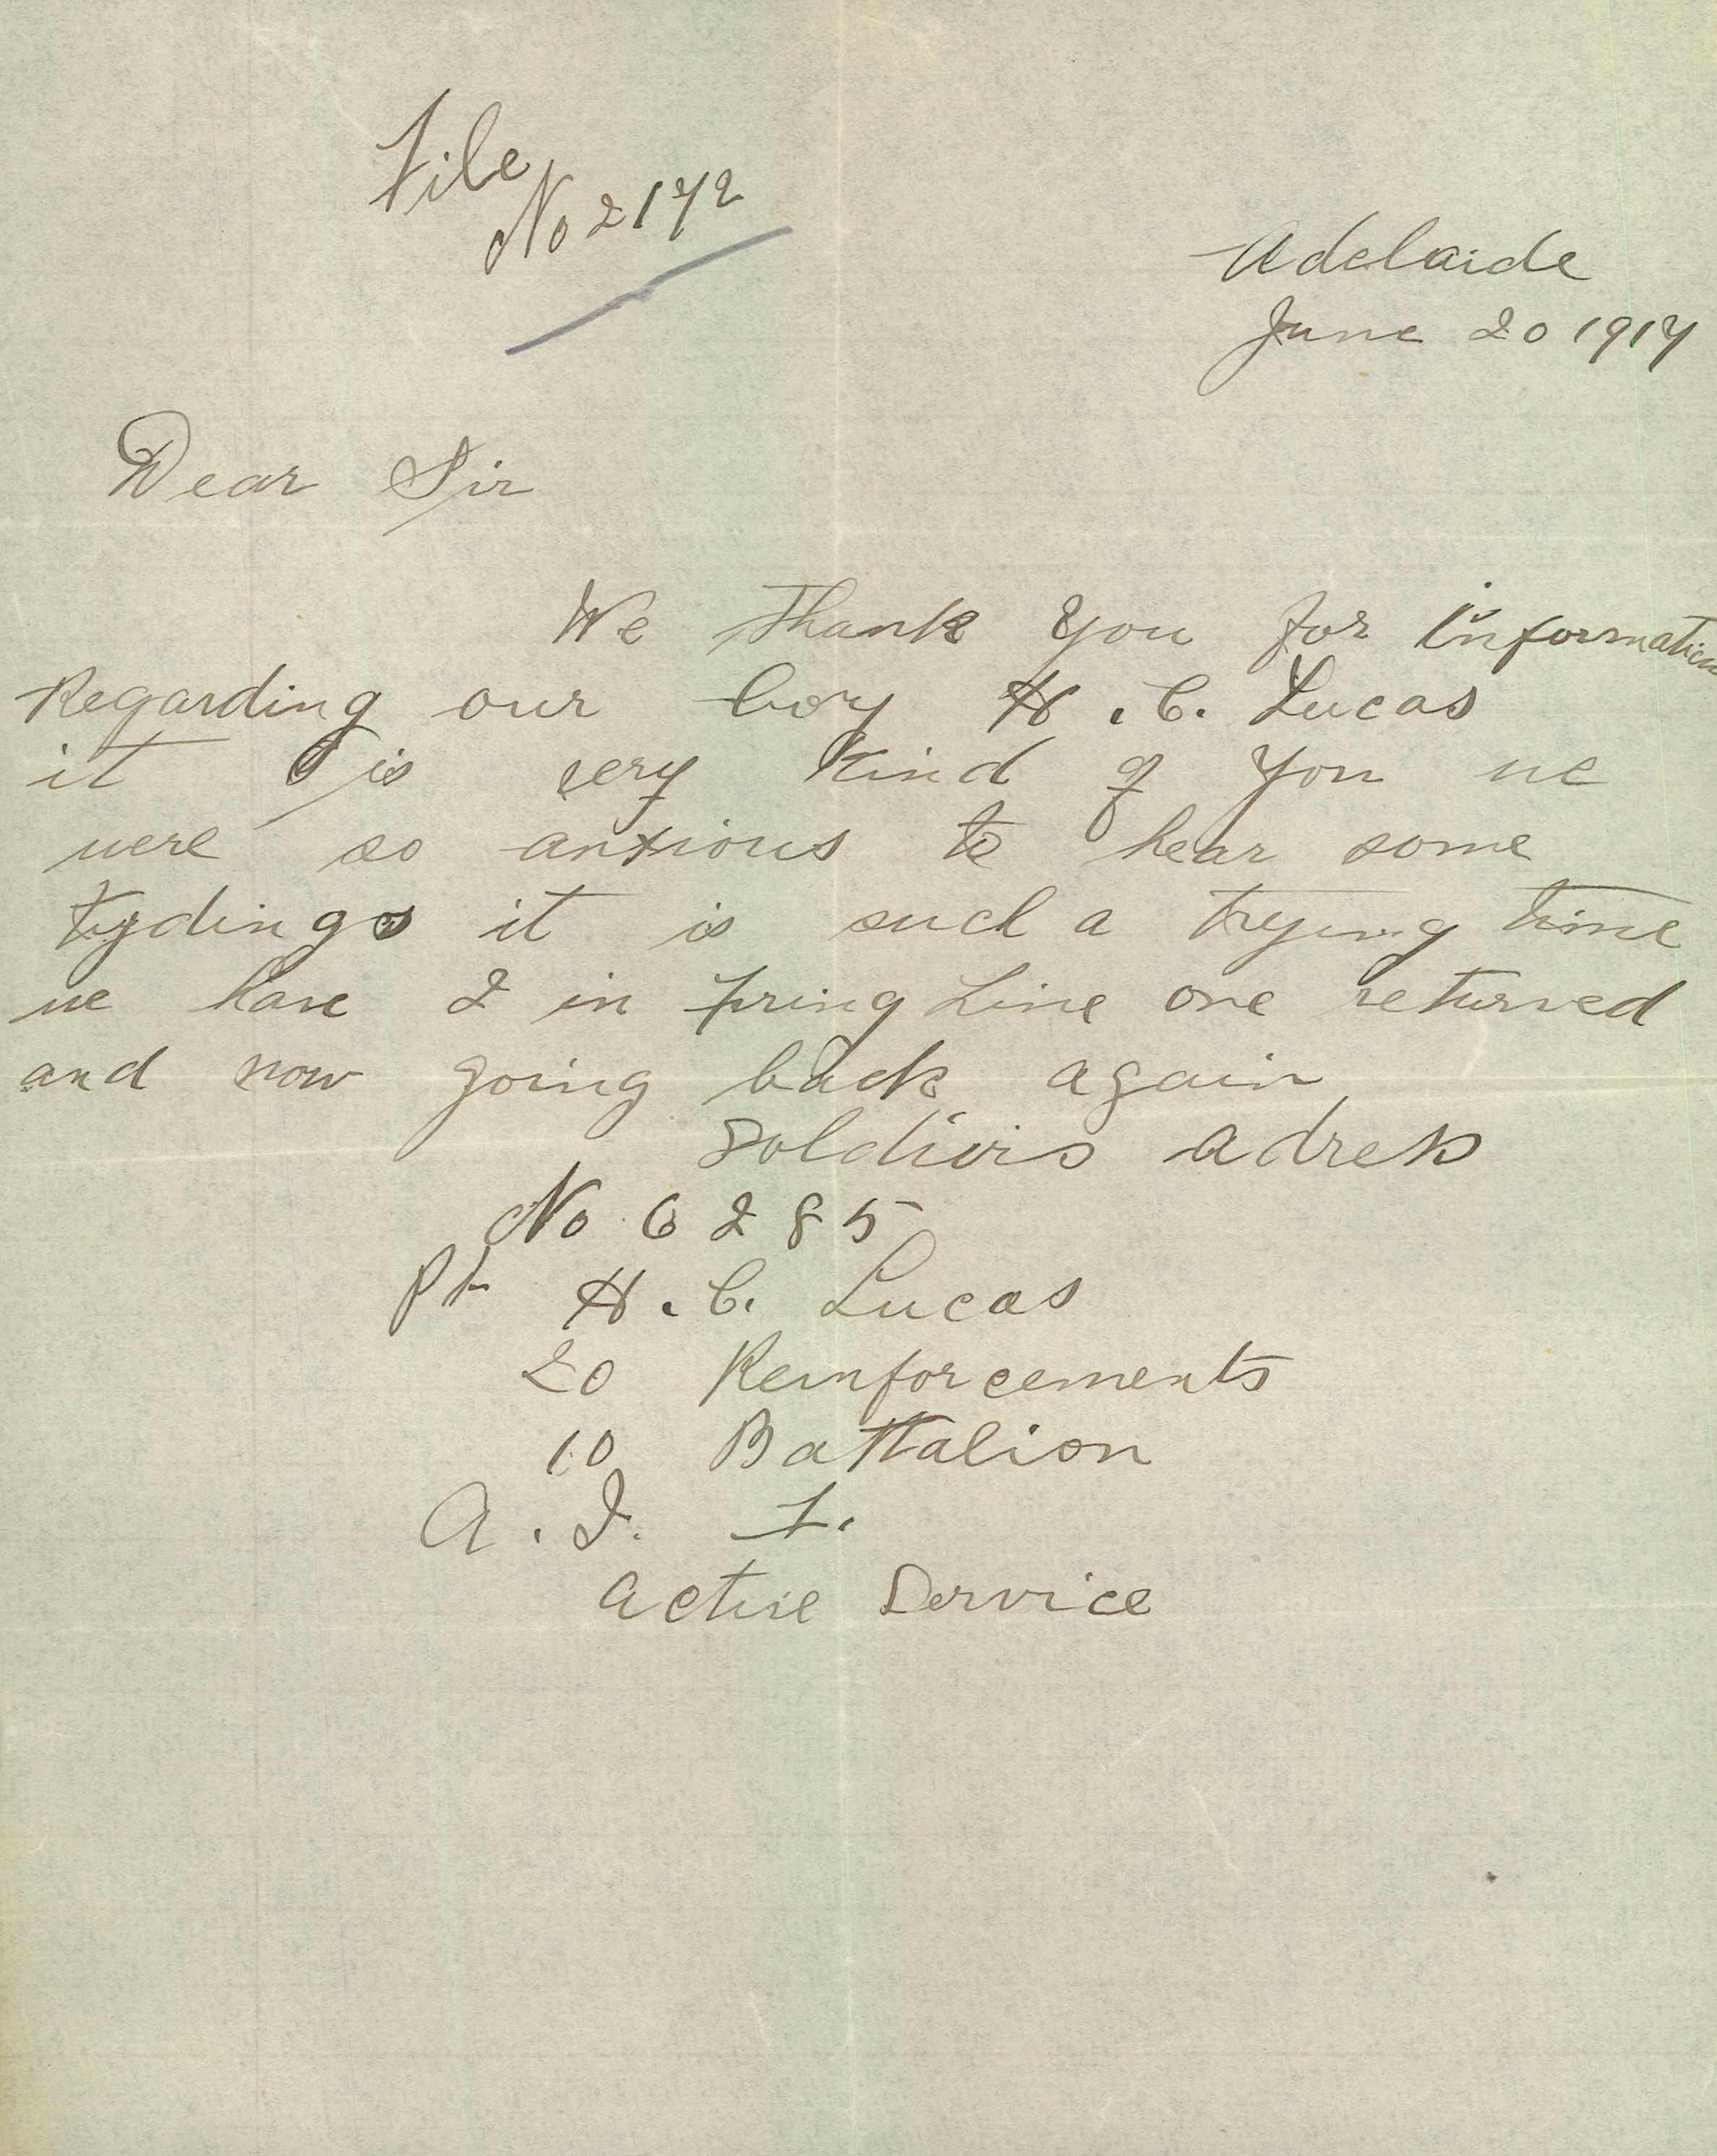 File
No 2172
Adelaide
June 20 1917
Dear Sir
We Thank you for information
Regarding our boy H. C. Lucas
it is very kind of you we
were so antxious to hear some
tydings it is such a trying time
we have 2 in firing Line one returned
and now going back again
Soldiers adress
No 6285
Pt H. C. Lucas
20 Reinforcements
10 Battalion
A. I. F.
Active Service